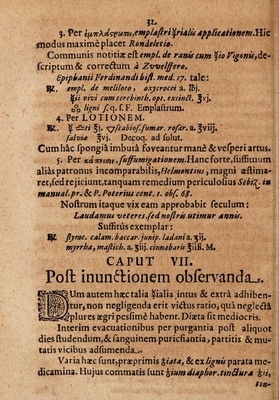 32.
3. Per ἐμπλάςρωσιν, emplastri ☿rialis applicationem. Hic
modus maximè placet Rondeletio.
Communis notitiæ est empl. de ranis cum ☿io Vigonis, de-
scriptum & correctum à Zvvelffero.
Epiphanii Ferdinandi hist. med. 17. tale:
℞. empl. de meliloto, oxycroci a ℥j.
☿ii vivi cum terebinth. opt. extinct. ʒvj.
ligni s. q. s. F. Emplastrum.
4. Per LOTIONEM.
℞. scabios. fumar. rosar. a. ʒviij.
salviæ ʒvj. Decoq. ad solut.
Cum hâc spongiâ imbutâ foveantur manè & vesperi artus.
5. Per κάπνισιν, suffumigationem. Hanc forte, suffitum
aliàs patronus incomparabilis, Helmontius, magni æstima-
ret, sed rejiciunt, tanquam remedium periculosius Sebiz. in
manual. pr. & P. Poterius cent. 1. obs. 68.
Nostrum itaque vix eam approbabit seculum:
Laudamus veteres, sed nostris utimur annis.
Suffitus exemplar:
℞. styrac. calam. baccar. junip. ladani a. ʒij.
myrrhæ, mastich. a ʒiij. cinnabaris ℥iiß. M.
CAPUT VII.
Post inunctionem observanda.
DUm autem hæc talia ☿ialia intus & extrà adhiben-
tur, non negligenda erit victus ratio, quâ neglectâ
plures ægri pessimè habent. Diæta sit mediocris.
Interim evacuationibus per purgantia post aliquot
dies studendum, & sanguinem purificantia, partitis & mu-
tatis vicibus adsumenda.
Varia hæc sunt, præprimis ♁iata, & ex lignis parata me-
dicamina. Hujus commatis sunt ♁ium diaphor. tinctura ♁ii,